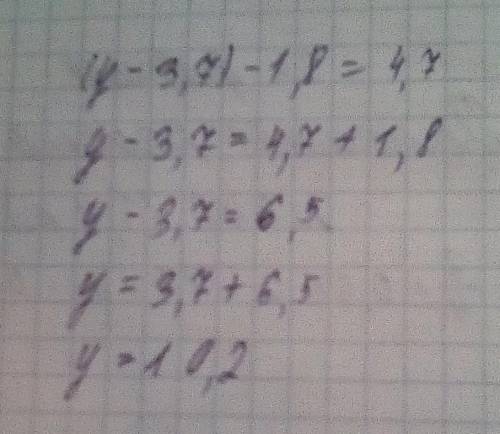 (y - 3,7) - 1,8 = 4,7
y - 3,7 = 4,7 + 1,8
y - 3,7 = 6,5
y = 3,7 + 6,5
y = 10,2